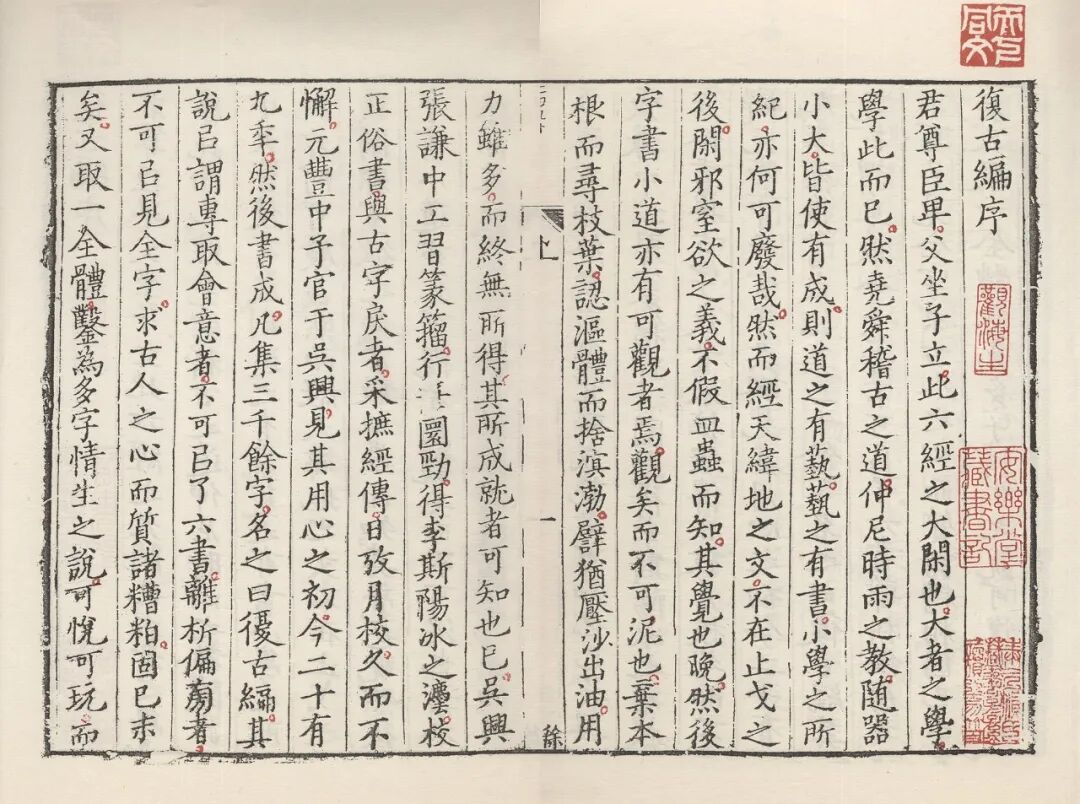 復古編序
君尊臣卑父坐子立此六經之大閑也大者之學
學此而已然堯舜稽古之道仲尼時雨之教随器
小大皆使有成則道之有藝藝之有書小學之所
紀亦何可廢哉然而經天緯地之文不在止戈之
後閑邪窒欲之義不假皿蟲而知其覺也晚然後
字書小道亦有可觀者焉觀矣而不可泥也棄本
根而尋枝葉認漚體而捨滇渤譬猶壓沙出油用
上
一
力雖多而終無所得其所成就者可知也已吳興
張謙中工習篆籀行圜勁得李斯陽冰之灋校
正俗書與古字戾者采摭經傳日攷月校久而不
懈元豐中子官于吳興見其用心之初今二十有
九秊然後書成凡集三千餘字名之曰復古編其
說㠯謂專取會意者不可㠯了六書離析偏旁者
不可㠯見全字求古人之心而質諸糟粕固已末
矣又取一全體鑿為多字情生之說可悅可玩而
安樂堂藏書記